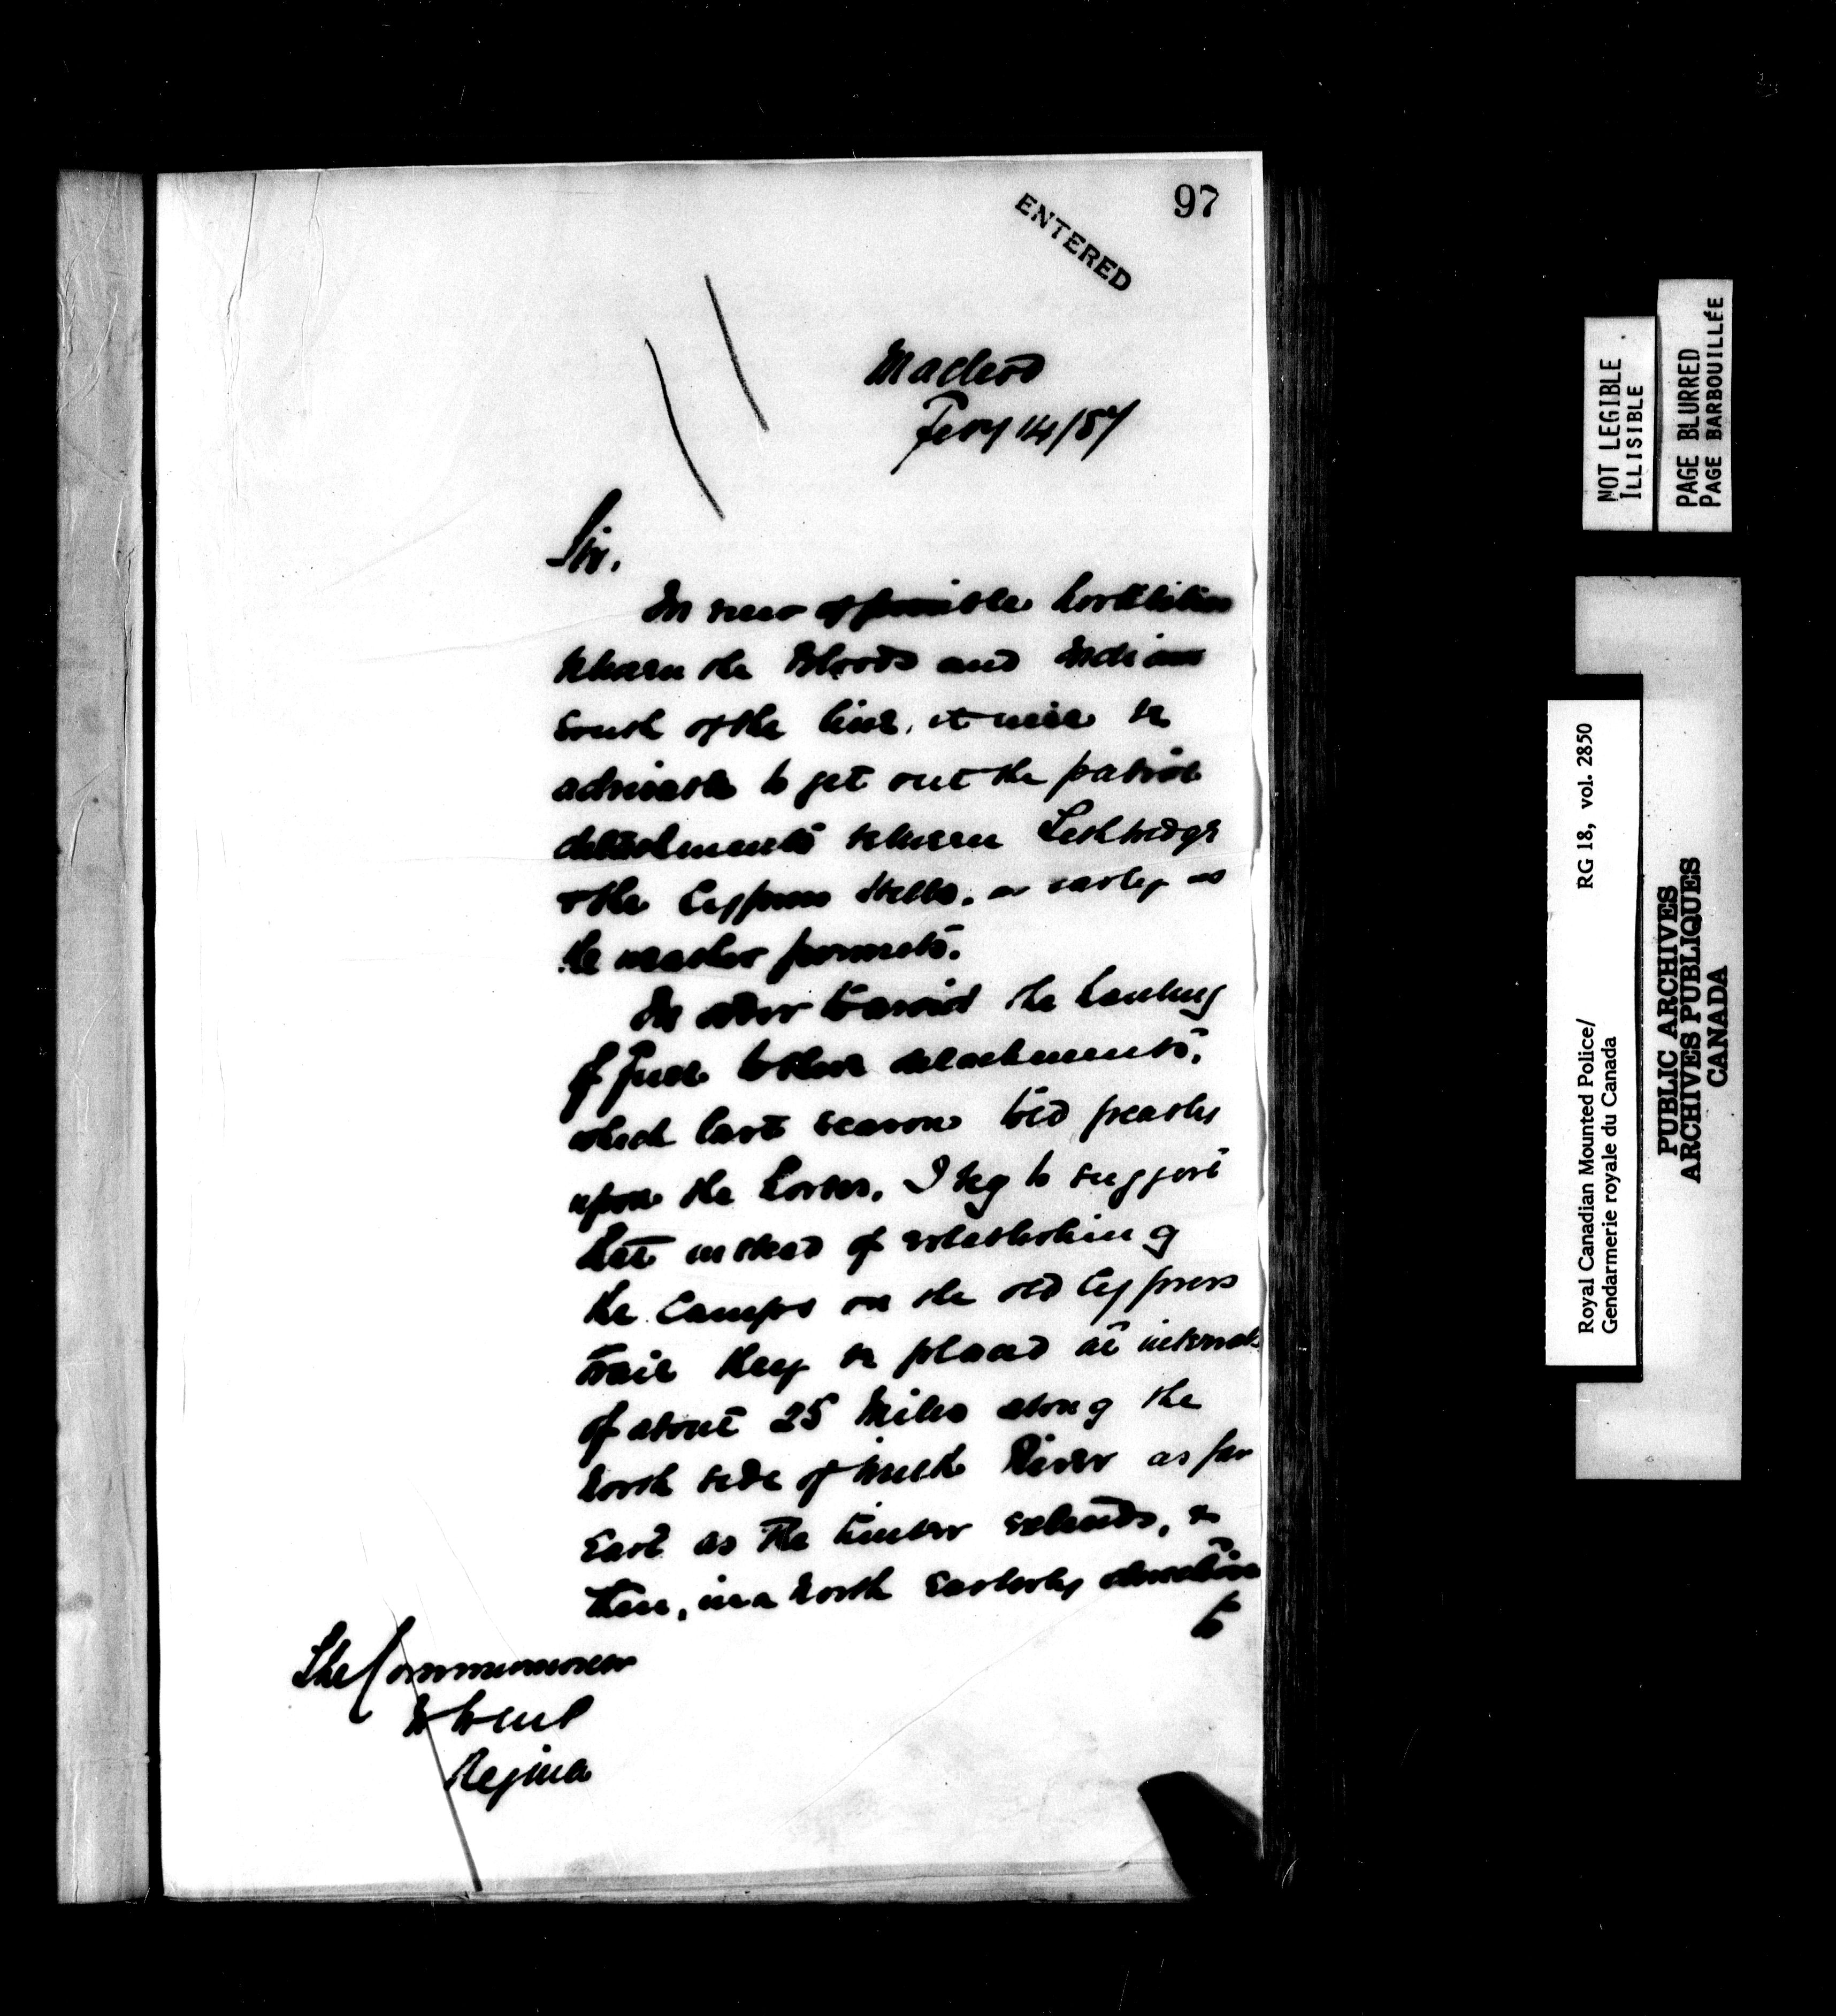 97
ENTERED
Macleod
Feby 14/87
Sir,
In view of possible hostilities
between the Bloods and Indians
South of the line, it will be
advisable to get out the patrol
detachments between Lethbridge
& the Cypress Hills, as early as
the weather permits.
In order to avoid the hauling
of fuel to these detachments,
which last season told greatly
upon the horses, I beg to suggest
that instead of establishing
the Camps on the old Cypress
trail they be placed at intervals
of about 25 Miles along the
North side of Milk River as far
East as the timber extends, &
then, in a North Easterly direction
to
The Commissioner
Regina
NOT LEGIBLE
ILLISIBLE
PAGE BLURRED
PAGE BARBOUILLÉE
Royal Canadian Mounted Police/
Gendarmerie royale du Canada
RG 18, vol. 2850
PUBLIC ARCHIVES
ARCHIVES PUBLIQUES
CANADA